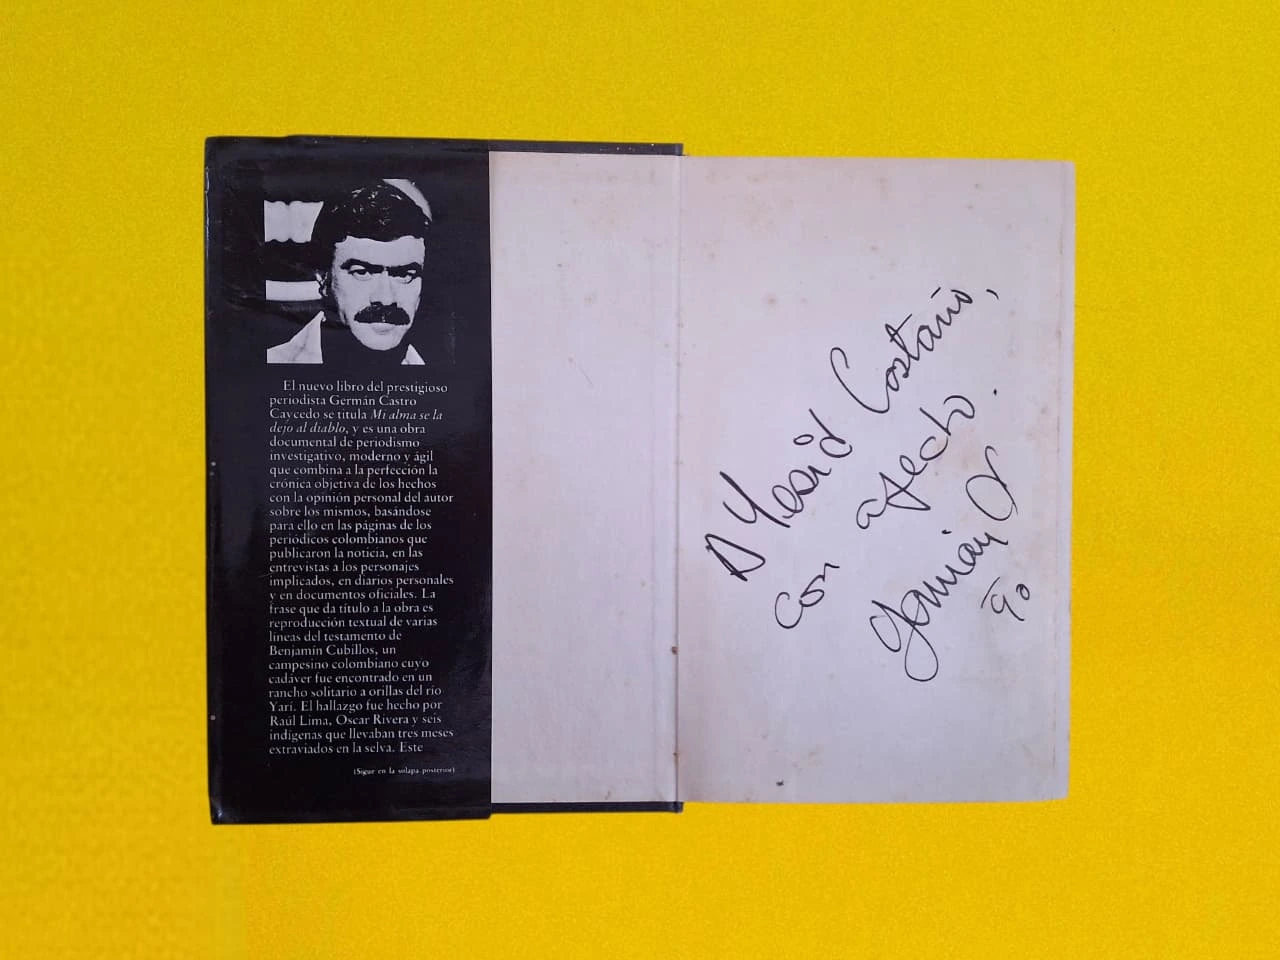 El nuevo libro del prestigioso
periodista Germán Castro
Caycedo se titula Mi alma se la
dejo al diablo, y es una obra
documental de periodismo
investigativo, moderno y ágil
que combina a la perfección la
crónica objetiva de los hechos
con la opinión personal del autor
sobre los mismos, basándose
para ello en las páginas de los
periódicos colombianos que
publicaron la noticia, en las
entrevistas a los personajes
implicados, en diarios personales
y en documentos oficiales. La
frase que da título a la obra es
reproducción textual de varias
líneas del testamento de
Benjamín Cubillos, un
campesino colombiano cuyo
cadáver fue encontrado en un
rancho solitario a orillas del río
Yarí. El hallazgo fue hecho por
Raúl Lima, Oscar Rivera y seis
indígenas que llevaban tres meses
extraviados en la selva. Este
(Sigue en la solapa posterior)
A Yesid Castaño,
con afecto.
Germán C
90